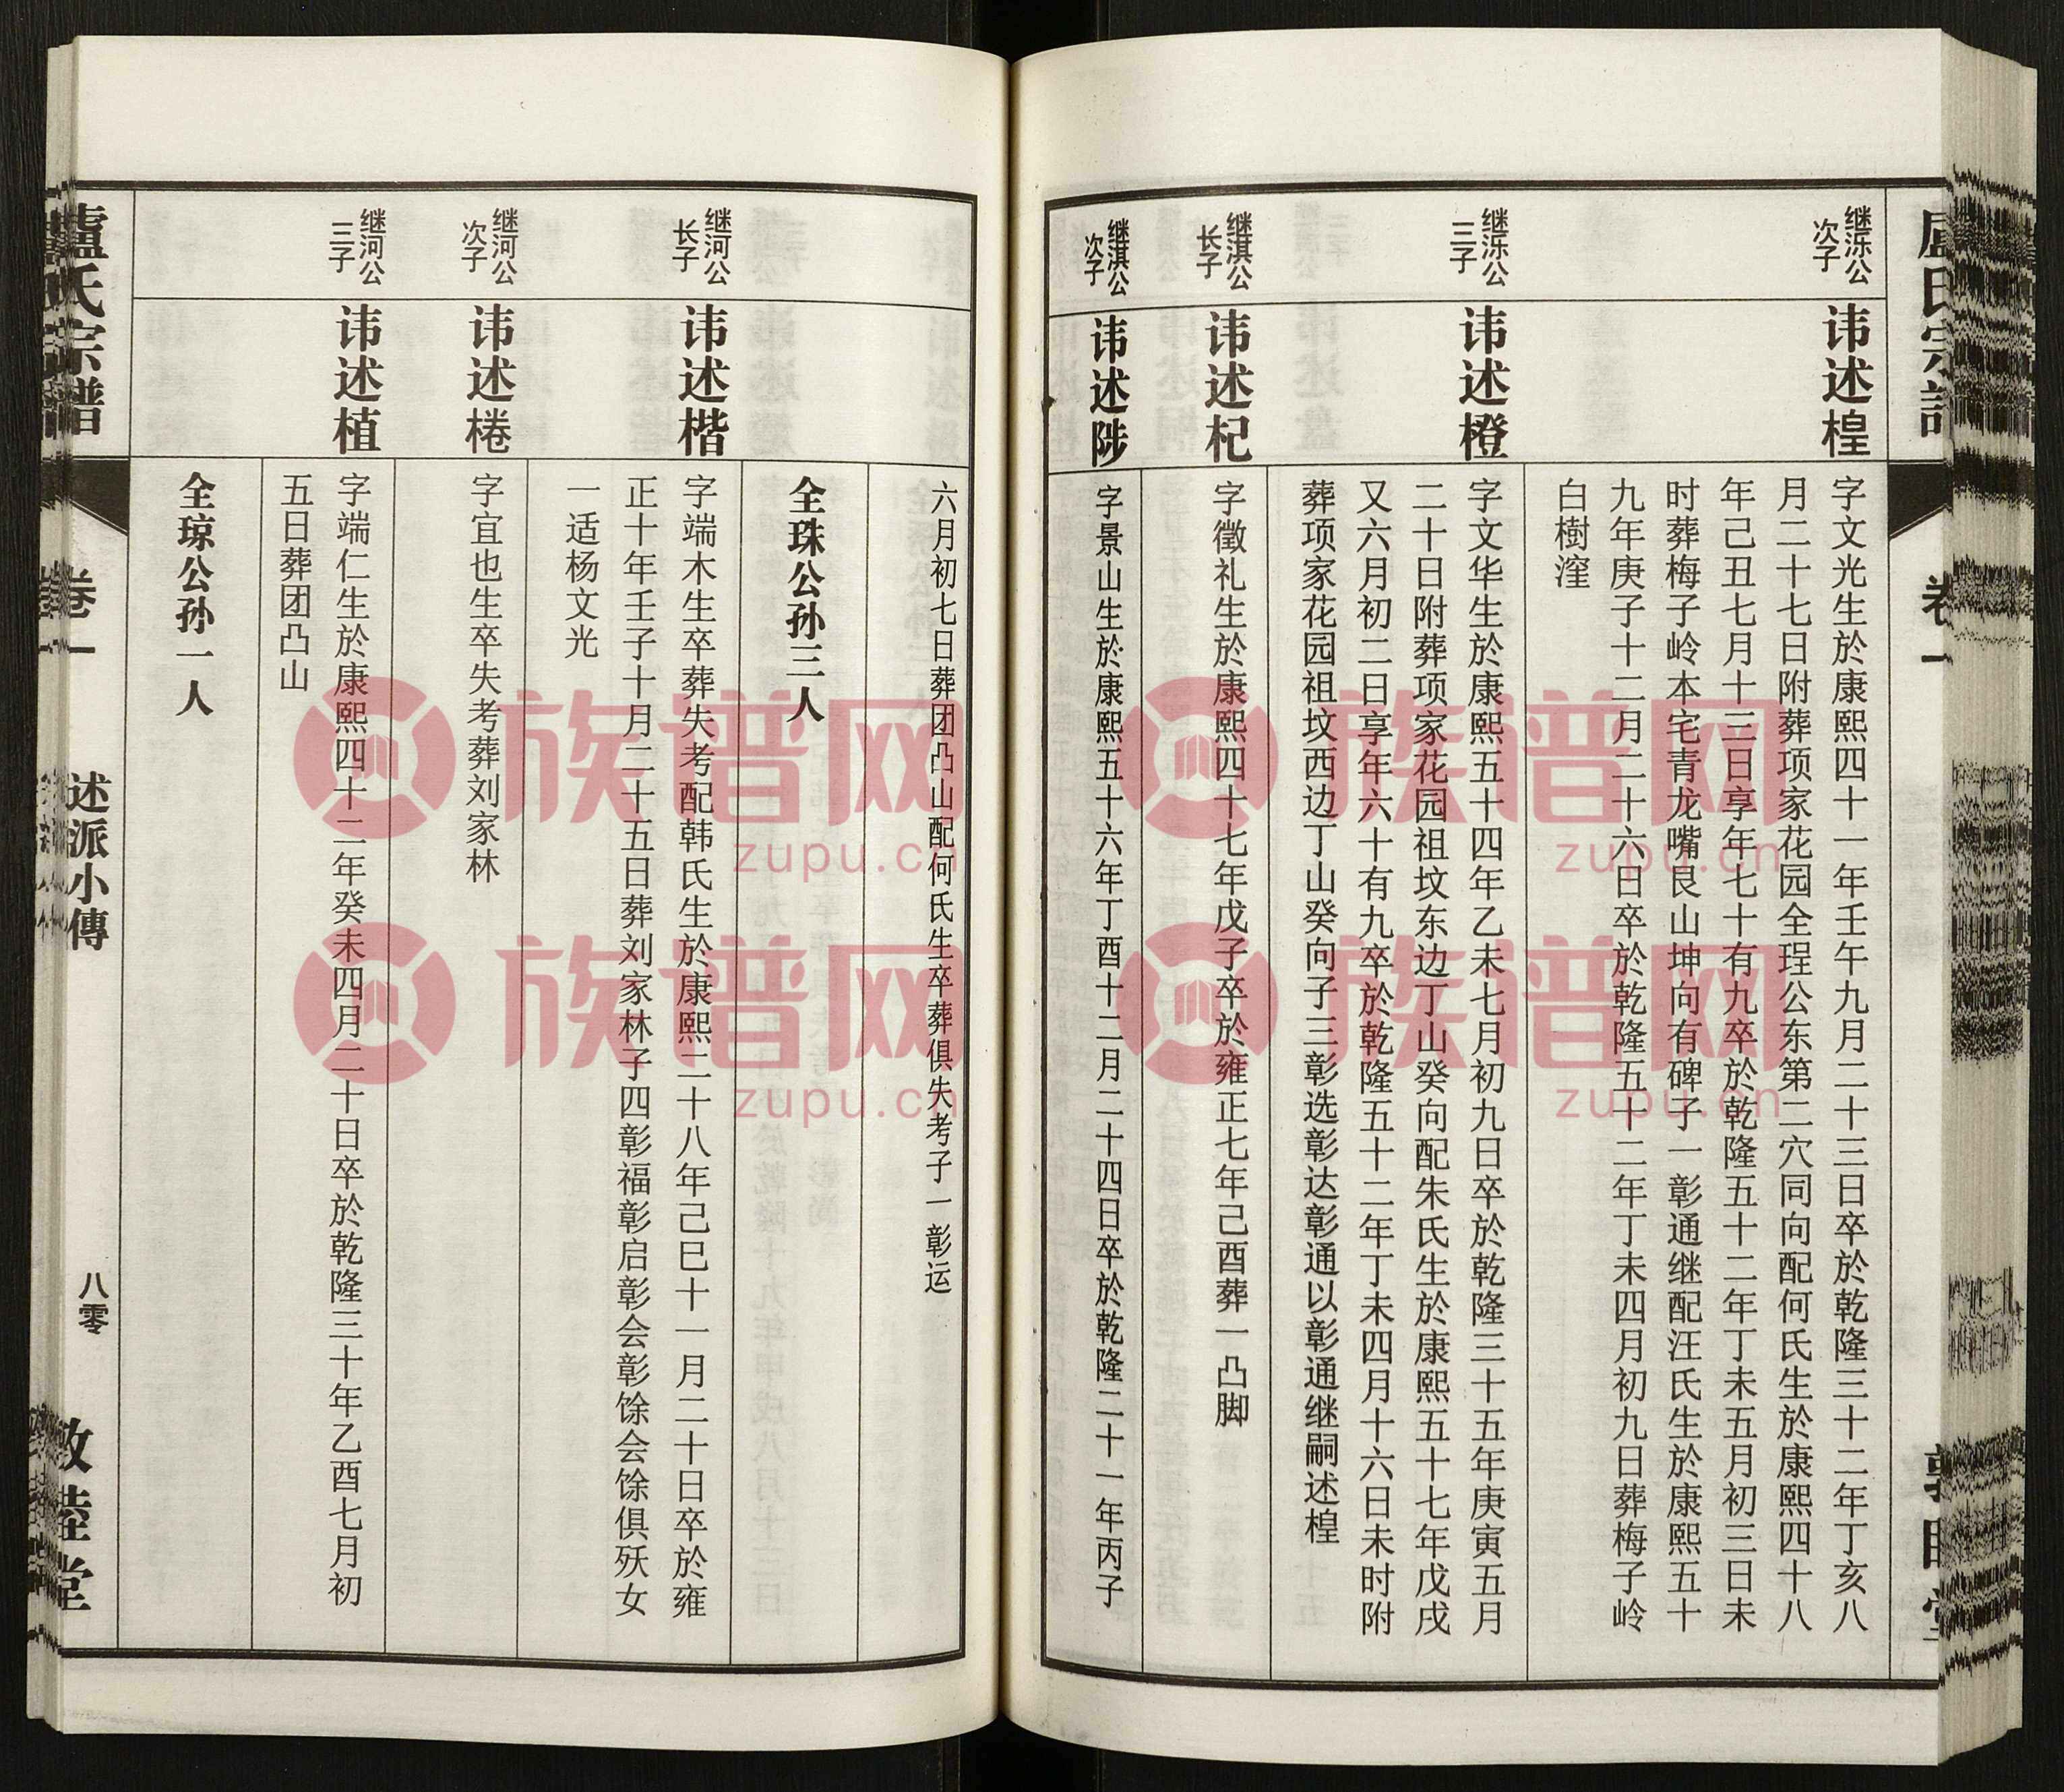 继泺公
次子
讳述楻
字文光生於康熙四十一年壬午九月二十三日卒於乾隆三十二年丁亥八
月二十七日附葬项家花园全珵公东第二穴同向配何氏生於康熙四十八
年己丑七月十三日享年七十有九卒於乾隆五十二年丁未五月初三日未
时葬梅子岭本宅青龙嘴艮山坤向有碑子一彰通继配汪氏生於康熙五十
九年庚子十二月二十六日卒於乾隆五十二年丁未四月初九日葬梅子岭
白樹漥
继泺公
三子
讳述橙
字文华生於康熙五十四年乙未七月初九日卒於乾隆三十五年庚寅五月
二十日附葬项家花园祖坟东边丁山癸向配朱氏生於康熙五十七年戊戌
又六月初二日享年六十有九卒於乾隆五十二年丁未四月十六日未时附
葬项家花园祖坟西边丁山癸向子三彰选彰达彰通以彰通继嗣述楻
继淇公
长子
讳述杞
字徵礼生於康熙四十七年戊子卒於雍正七年己酉葬一凸脚
继淇公
次子
讳述陟
字景山生於康熙五十六年丁酉十二月二十四日卒於乾隆二十一年丙子
六月初七日葬团凸山配何氏生卒葬俱失考子一彰运
全珠公孙三人
继河公
长子
讳述楷
字端木生卒葬失考配韩氏生於康熙二十八年己巳十一月二十日卒於雍
正十年壬子十月二十五日葬刘家林子四彰福彰启彰会彰馀会馀俱殀女
一适杨文光
继河公
次子
讳述棬
字宜也生卒失考葬刘家林
继河公
三子
讳述植
字端仁生於康熙四十二年癸未四月二十日卒於乾隆三十年乙酉七月初
五日葬团凸山
全琼公孙一人
盧氏宗譜
卷一
述派小傳
八零
敦睦堂
族谱网
zupu.cn
族谱网
zupu.cn
族谱网
zupu.cn
族谱网
zupu.cn